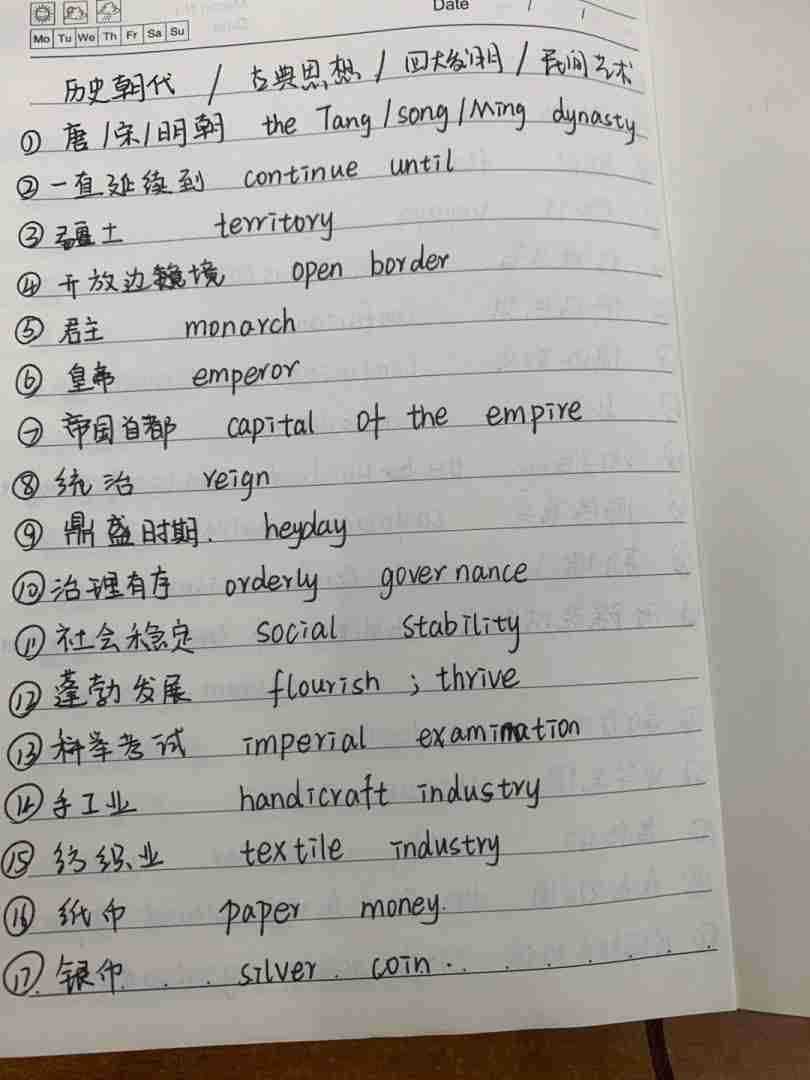 Date / /
Mo Tu We Th Fr Sa Su
历史朝代 / 古典思想 / 四大发明 / 民间艺术
① 唐/宋/明朝 the Tang/song/Ming dynasty
② 一直延续到 continue until
③ 疆土 territory
④ 开放边境 open border
⑤ 君主 monarch
⑥ 皇帝 emperor
⑦ 帝国首都 capital of the empire
⑧ 统治 reign
⑨ 鼎盛时期. heyday
⑩ 治理有序 orderly governance
⑪ 社会稳定 social stability
⑫ 蓬勃发展 flourish ; thrive
⑬ 科举考试 imperial examination
⑭ 手工业 handicraft industry
⑮ 纺织业 textile industry
⑯ 纸币 paper money.
⑰ 银币 silver coin